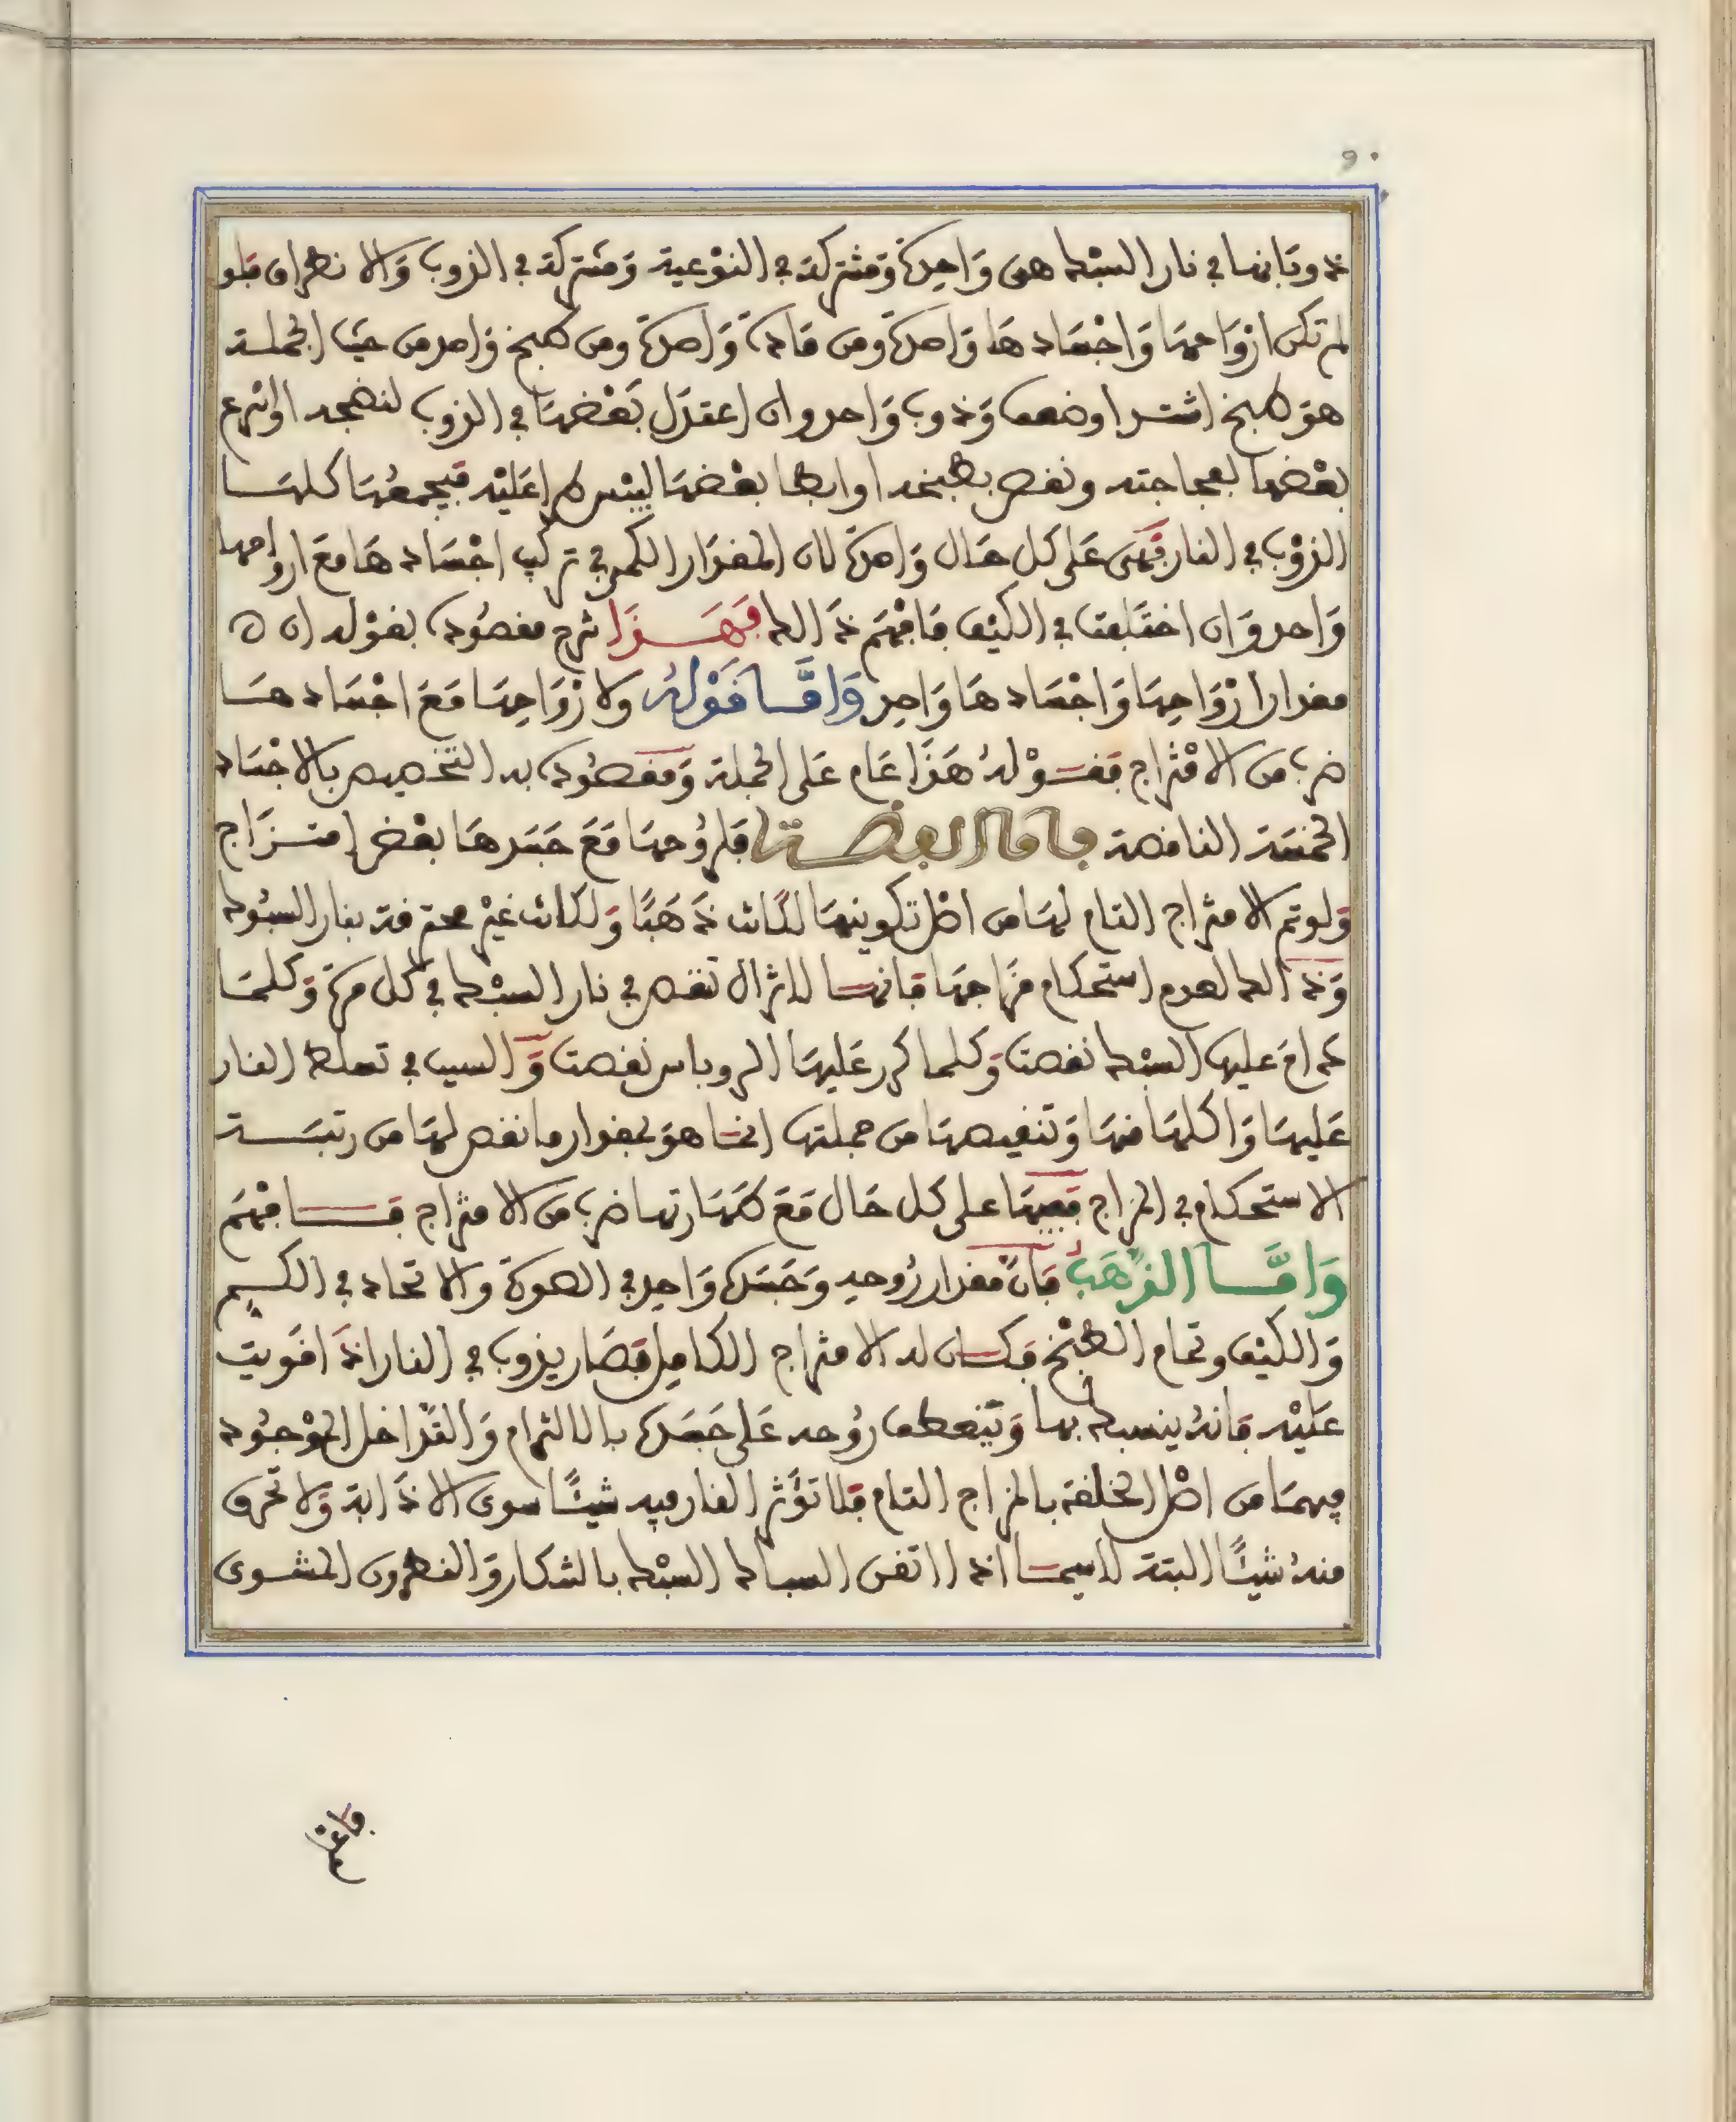 ذوبانها في نار السبك هي واحدة ومشتركة في النوعية ومشتركة في الذوب والانطراق فلو
لم تكن ارواحها واجسادها واحدة ومن مادة واحدة ومن طبخ واحد من حيث الجملة
هو طبخ اشتد او ضعف وذوب واحد وان اعتدل بعضها في الذوب لنضجه او اسرع
بعضها لفجاجته ونقص بطبخه او ابطا بعضها لليبس طرا عليه فيجمعها كلها
الذوب في النار فهي على كل حال واحدة لان المقدار الكمي في تركيب اجسادها مع ارواحها
واحد وان اختلفت في الكيف فافهم ذالك فهذا شرح مقصوده بقوله ان
مقدار ارواحها واجسادها واحد واما قوله ولارواحها مع اجسادها
ضرب من الامتزاج فقوله هذا عام على الجملة ومقصوده به التخصيص بالاجساد
الخمسة الناقصة فاما الفضة فلروحها مع جسدها بعض امتزاج
ولو تم الامتزاج التام لها من اصل تكوينها لكانت ذهبا ولكانت غير محترقة بنار السبوك
وذالك لعدم استحكام مزاجها فانها لا تزال تنقص في نار السبك في كل مرة وكلما
دام عليها السبك نقصت وكلما كرر عليها الروباس نقصت والسبب في تسلط النار
عليها واكلها منها وتنقيصها من جملتها انما هو بمقدار ما نقص لها من رتبة
الاستحكام في المزاج ففيها على كل حال مع طهارتها ضرب من الامتزاج فافهم
واما الذهب فان مقدار روحه وجسده واحد في الصورة والاتحاد في الكم
والكيف وتمام الطبخ فكان له الامتزاج الكامل فصار يذوب في النار اذا قويت
عليه فانه ينسبك بها وتنعطف روحه على جسده بالالتزام والتداخل الموجود
فيهما من اصل الخلقة بالمزاج التام فلا تؤثر النار فيه شيئا سوى الاذابة ولا تحرق
منه شيئا البتة لاسيما اذا اتقن السباك السبك بالشكار والنطرون المشوى